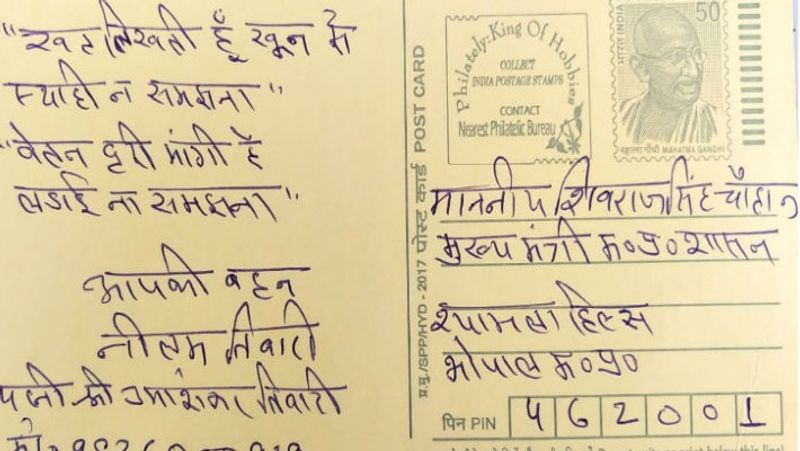 "खत लिखती हूँ खून से
स्याही न समझना"
"वेतन दूरी मांगी है
लडाई ना समझना"
आपकी बहन
नीलम तिवारी
पत्नी श्री उमाशंकर तिवारी
मो.
प्र.मु./SPP/HYD - 2017 पोस्ट कार्ड POST CARD
Philately: King Of Hobbies
COLLECT
INDIA POSTAGE STAMPS
CONTACT
Nearest Philatelic Bureau
भारत INDIA
50
महात्मा गाँधी MAHATMA GANDHI
माननीय शिवराज सिंह चौहान
मुख्य मंत्री म०प्र० शासन
श्यामला हिल्स
भोपाल म०प्र०
पिन PIN 462001